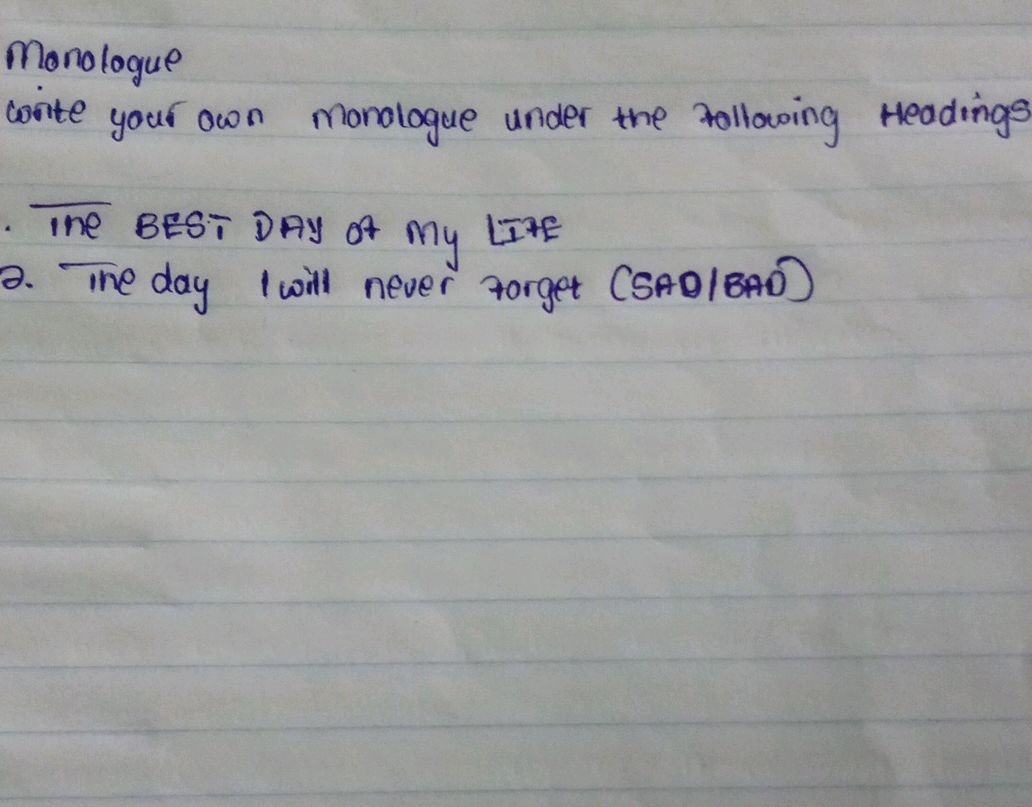 Monologue
write your own monologue under the following Headings
. The BEST DAY OF My LIFE
2. The day I will never forget (SAD/BAD)